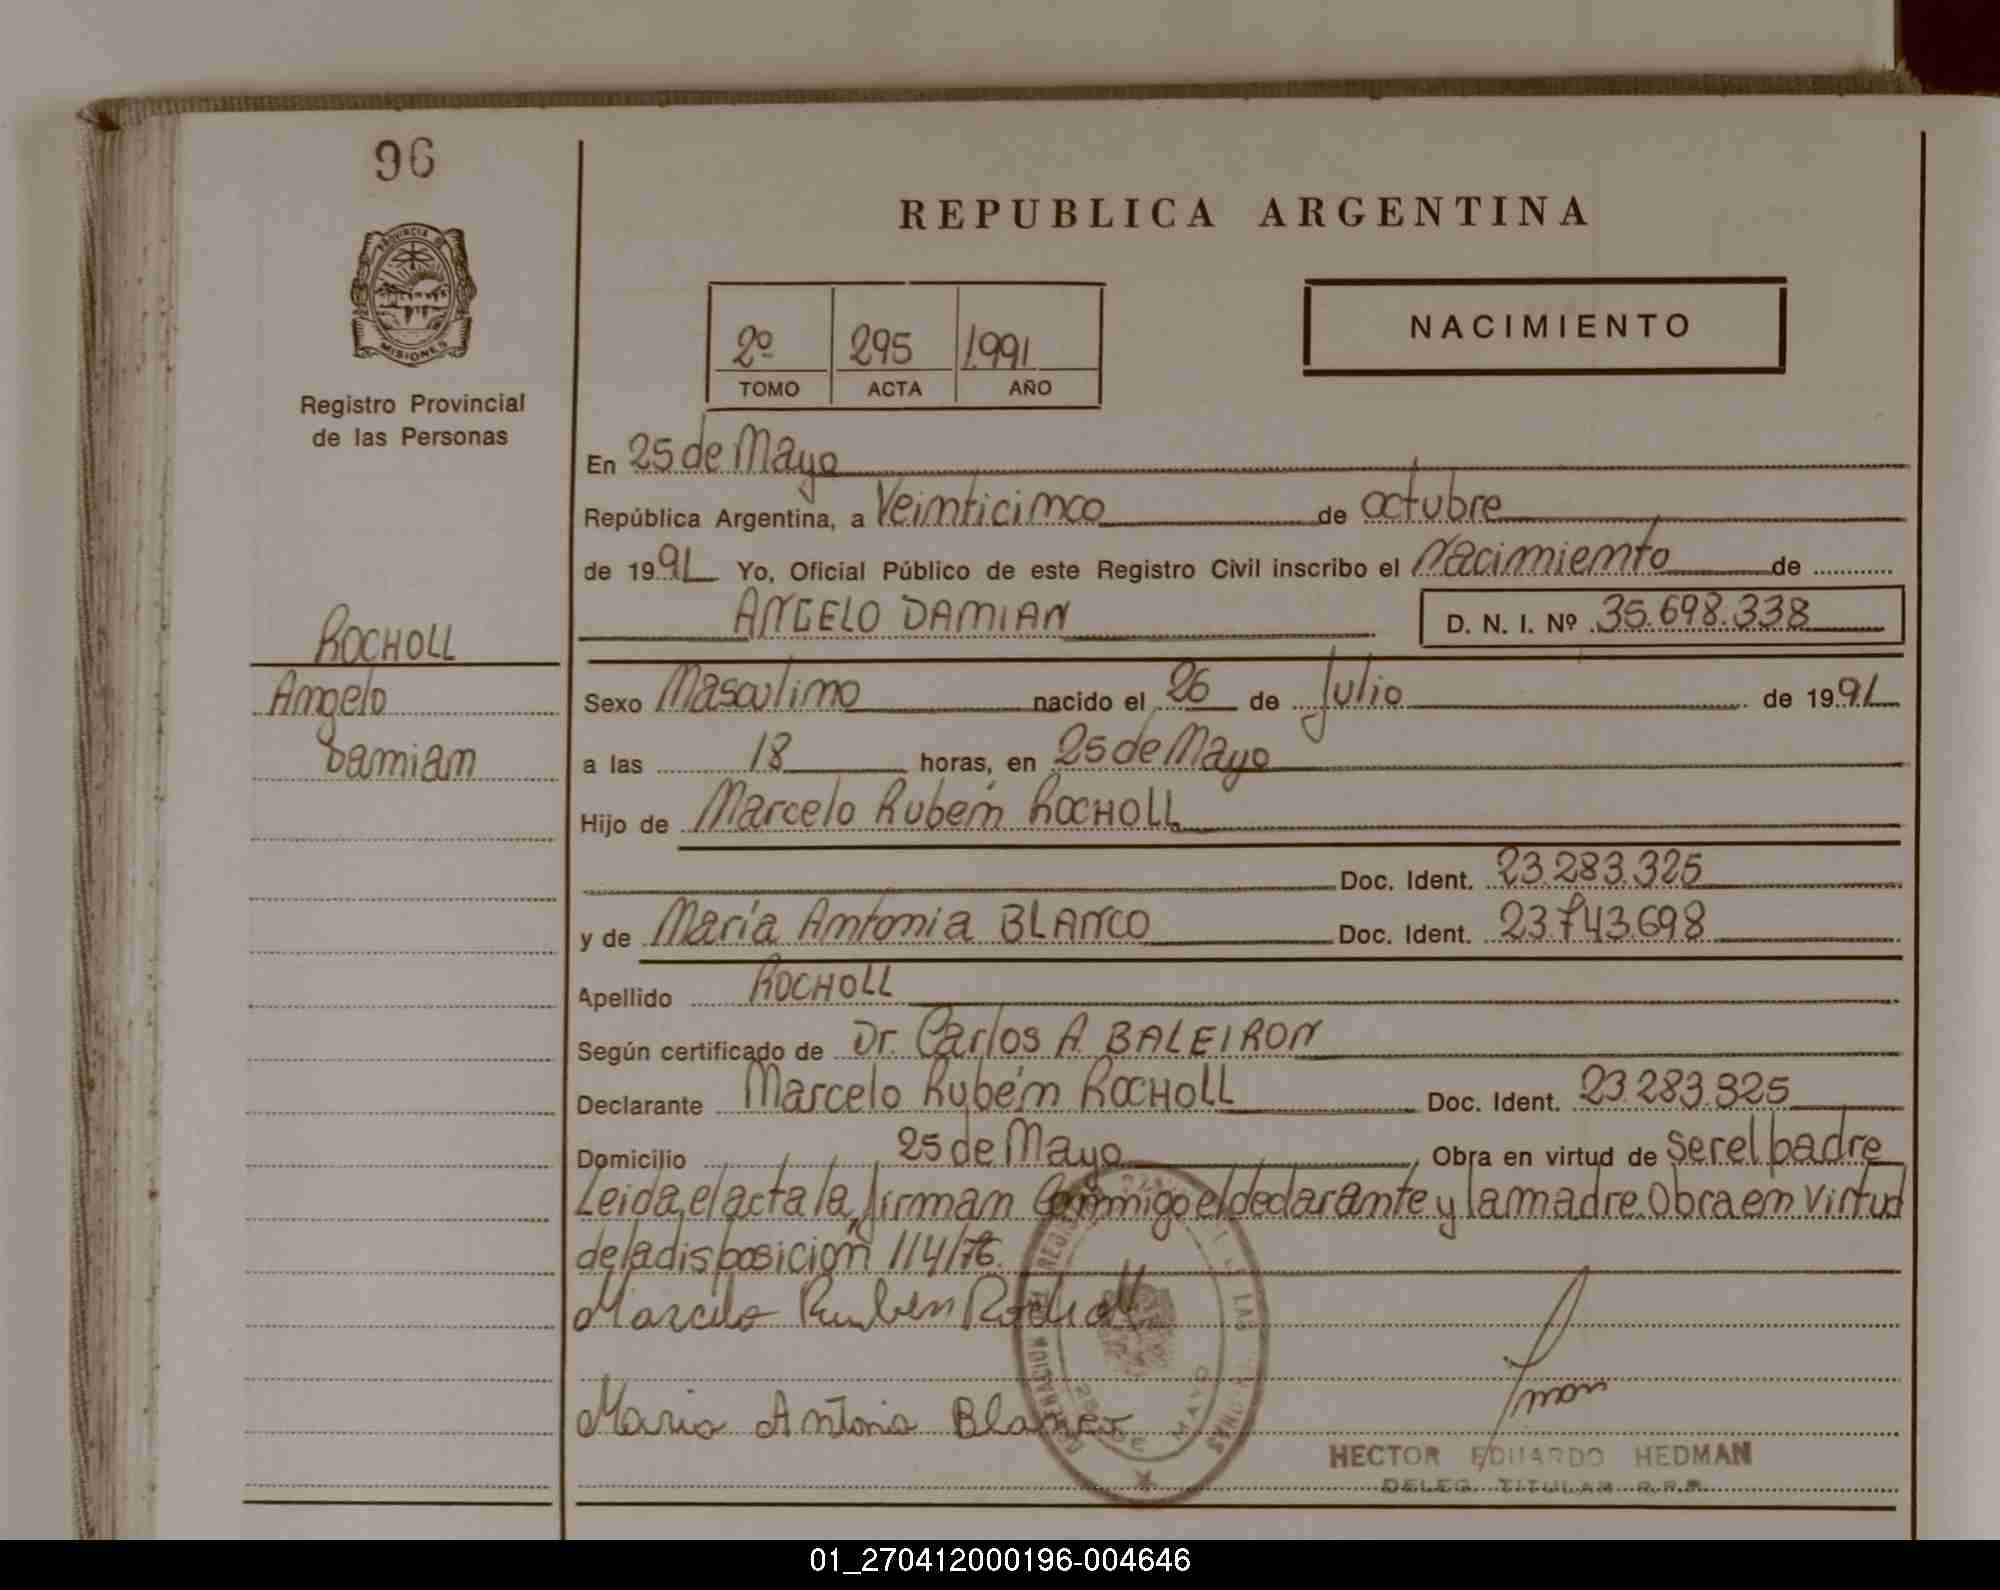 96
REPUBLICA ARGENTINA
PROVINCIA DE
MISIONES
Registro Provincial
de las Personas
2º 295 1.991
TOMO ACTA AÑO
NACIMIENTO
En 25 de Mayo
República Argentina, a Veinticinco de octubre
de 1991 Yo, Oficial Público de este Registro Civil inscribo el Nacimiento de
ANGELO DAMIAN D. N. I. Nº 35.698.338
ROCHOLL
Angelo
Damian
Sexo Masculino nacido el 26 de Julio de 1991
a las 18 horas, en 25 de Mayo
Hijo de Marcelo Rubén ROCHOLL
Doc. Ident. 23.283.325
y de María Antonia BLANCO Doc. Ident. 23.743.698
Apellido ROCHOLL
Según certificado de Dr. Carlos A. BALEIRON
Declarante Marcelo Rubén ROCHOLL Doc. Ident. 23.283.325
Domicilio 25 de Mayo Obra en virtud de ser el padre
Leida, el acta la firman Conmigo el declarante y la madre. Obra em virtud
de la disposición 114/76.
Marcelo Ruben Rocholl
Maria Antonia Blanco
25 DE MAYO
HECTOR EDUARDO HEDMAN
DELEG. TITULAR R.R.P.
01_270412000196-004646